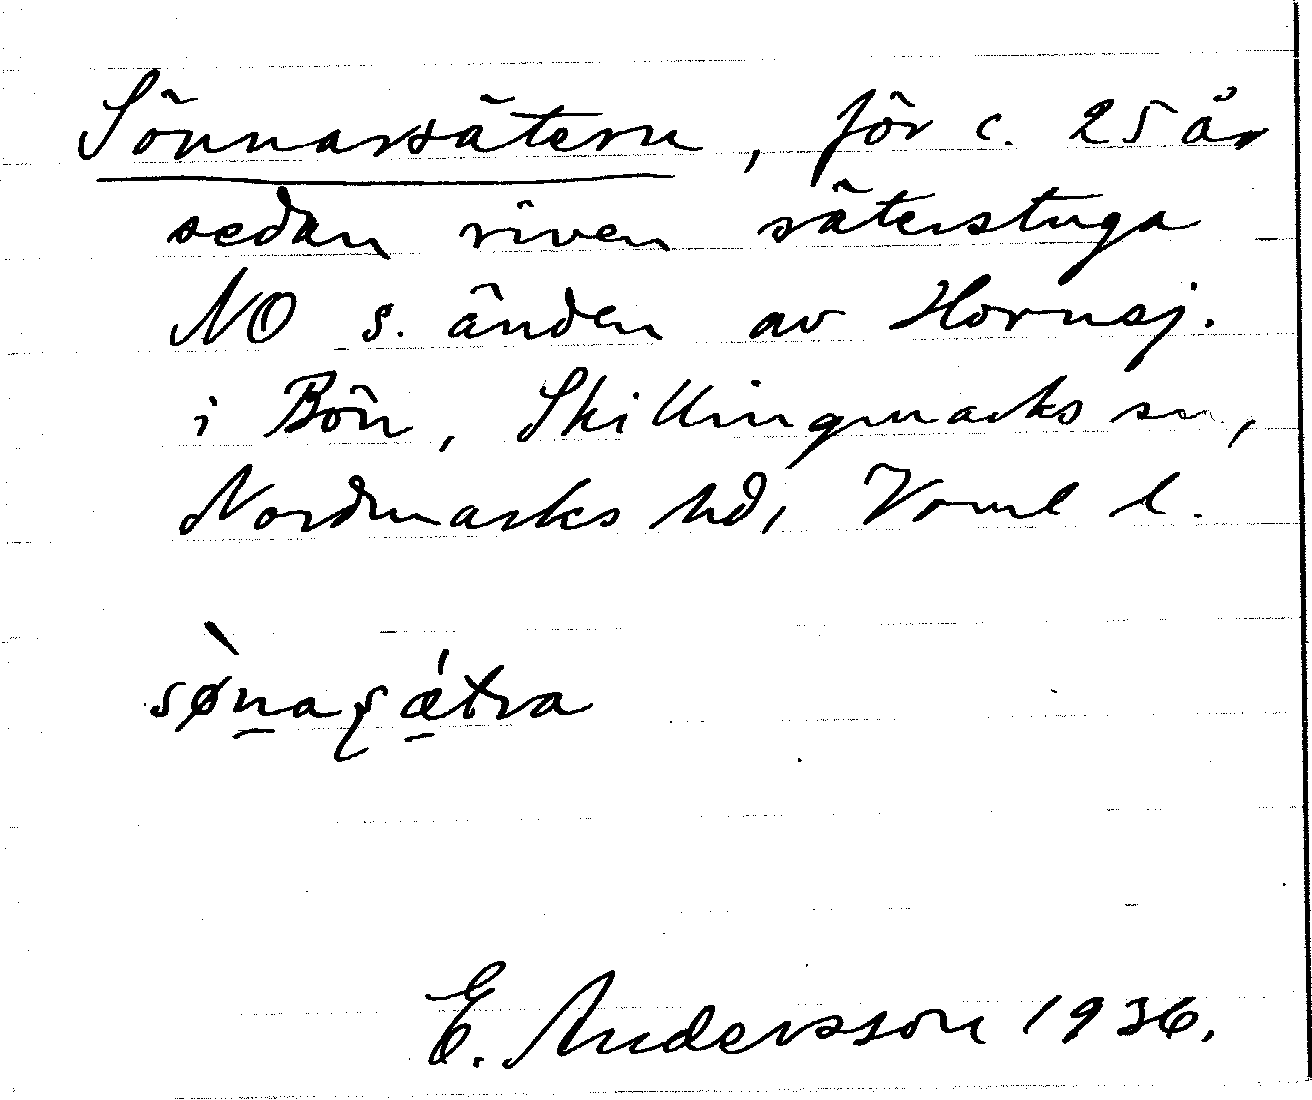 Sönnarsätern, för c. 25 år
sedan riven säterstuga
NO s. änden av Hornsj.
i Bön, Skillingmarks sn,
Nordmarks hd, Vrml l.
sø̀naʂǽtra
E. Andersson 1936.